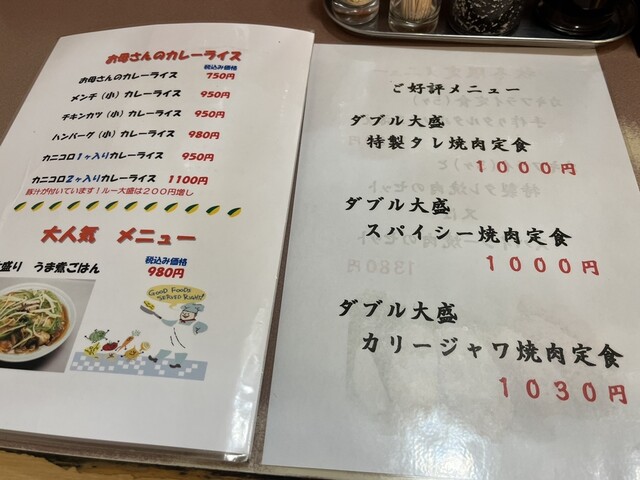 お母さんのカレーライス
税込み価格
お母さんのカレーライス 750円
メンチ(小)カレーライス 950円
チキンカツ(小)カレーライス 950円
ハンバーグ(小)カレーライス 980円
カニコロ1ヶ入りカレーライス 950円
カニコロ2ヶ入りカレーライス 1100円
豚汁が付いています!ルー大盛は200円増し
大人気 メニュー
税込み価格
盛り うま煮ごはん 980円
GOOD FOODS
SERVED RIGHT!
ご好評メニュー
ダブル大盛
特製タレ焼肉定食
1000円
ダブル大盛
スパイシー焼肉定食
1000円
ダブル大盛
カリージャワ焼肉定食
1030円